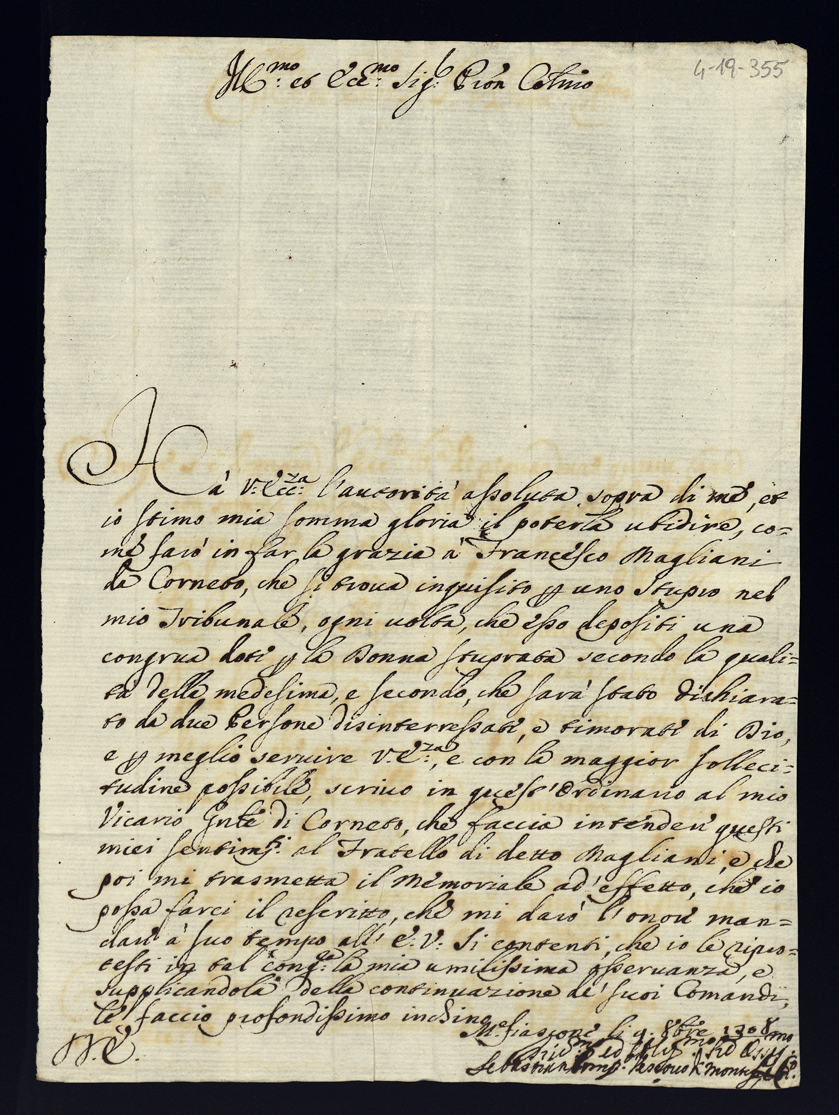 4-19-355
Ill:mo et Ecc:mo Sig:r Pron Col:mo
Hà V: Ecc:za l'autorità assoluta sopra di me, et
io stimo mia somma gloria il poterla ubidire, co=
me farò in far la grazia à Francesco Magliani
da Corneto, che si troua inquisito p uno stupro nel
mio Tribunale, ogni uolta, che esso depositi una
congrua doti p la Donna stuprata secondo la quali=
tà della medesima, e secondo, che sarà stato dichiara=
to da due Persone disinterressati, e timorati di Dio,
e p meglio seruire V: E:za, e con la maggior solleci=
tudine possibile, scriuo in quest'Ordinario al mio
Vicario Gnle di Corneto, che faccia intender questi
miei sentim:ti al Fratello di detto Magliani, e che
poi mi trasmetta il Memoriale ad' effetto, che io
possa farci il rescritto, che mi darò l'onor man=
darl' à suo tempo all' E: V: Si contenti, che io le ripro=
testi in tal cong:ra la mia umilissima osseruanza, e
supplicandola della continuazione de' suoi Comandi,
le faccio profondissimo inchino
M:e fiascone li 9. 8bre 1708
di V. E.
Sebastiano Vescouo di Montef: